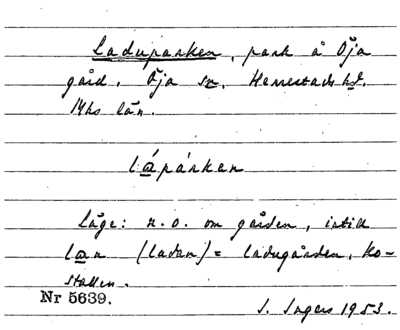 Laduparken, park å Öja
gård. Öja sn. Herrestads hd.
Mhs län.
lápárken
Läge: n.o. om gården, intill
lan (ladan) = ladugården, ko-
stallen.
Nr 5639.
S. Ingers 1953.